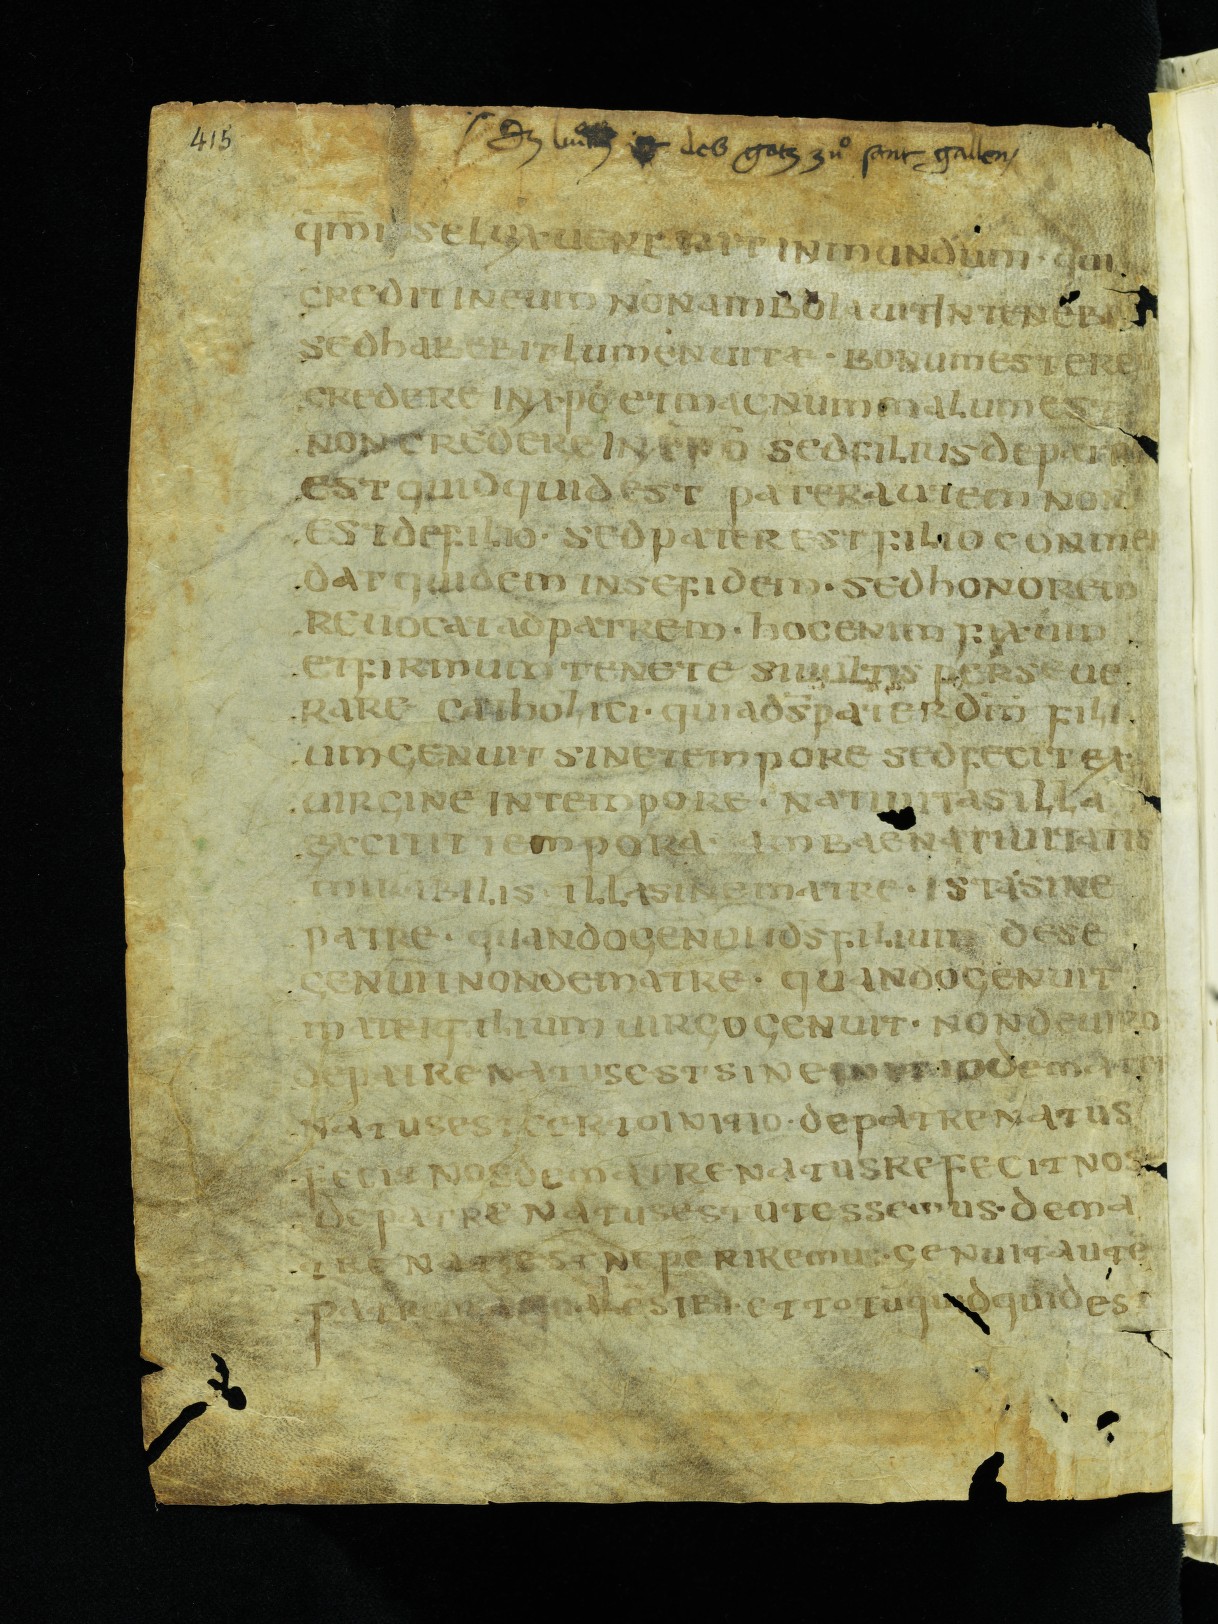 415
des gotz zuͦ sant gallen
selux uenerit inmundum · qui
credit ineum nonambolauit intenebr
sedhabebit lumenuitae · bonumest ere
credere inxpō etmagnummalumest
noncredere inxpō sedfiliusdepatre
estquidquidest paterautem non
estdefilio · sedpaterestfilio conmen
datquidem insefidem · sedhonorem
reuocatadpatrem · hocenim fixum
etfirmum tenete siuultis perseue
rare catholici · quiad̄spaterd̄m fili
umgenuit sinetempore sedfecit ex
uirgine intempore · natiuitasilla
excitit tempora · ambaenatiuitatis
mirabilis illasinematre · istasine
patre · quandogenuitd̄sfilium dese
genuitnondematre · quandogenuit
materfilium uirgogenuit · nondeuiro
depatrenatusest sineinitiodematre
natusestcertoinitio · depatrenatus
fecitnosdematrenatusrefecitnos
depatrenatusestutessemus · dema
tre natusestneperiremus · genuitaute
pater aequalēsibi · ettotūquidquidest